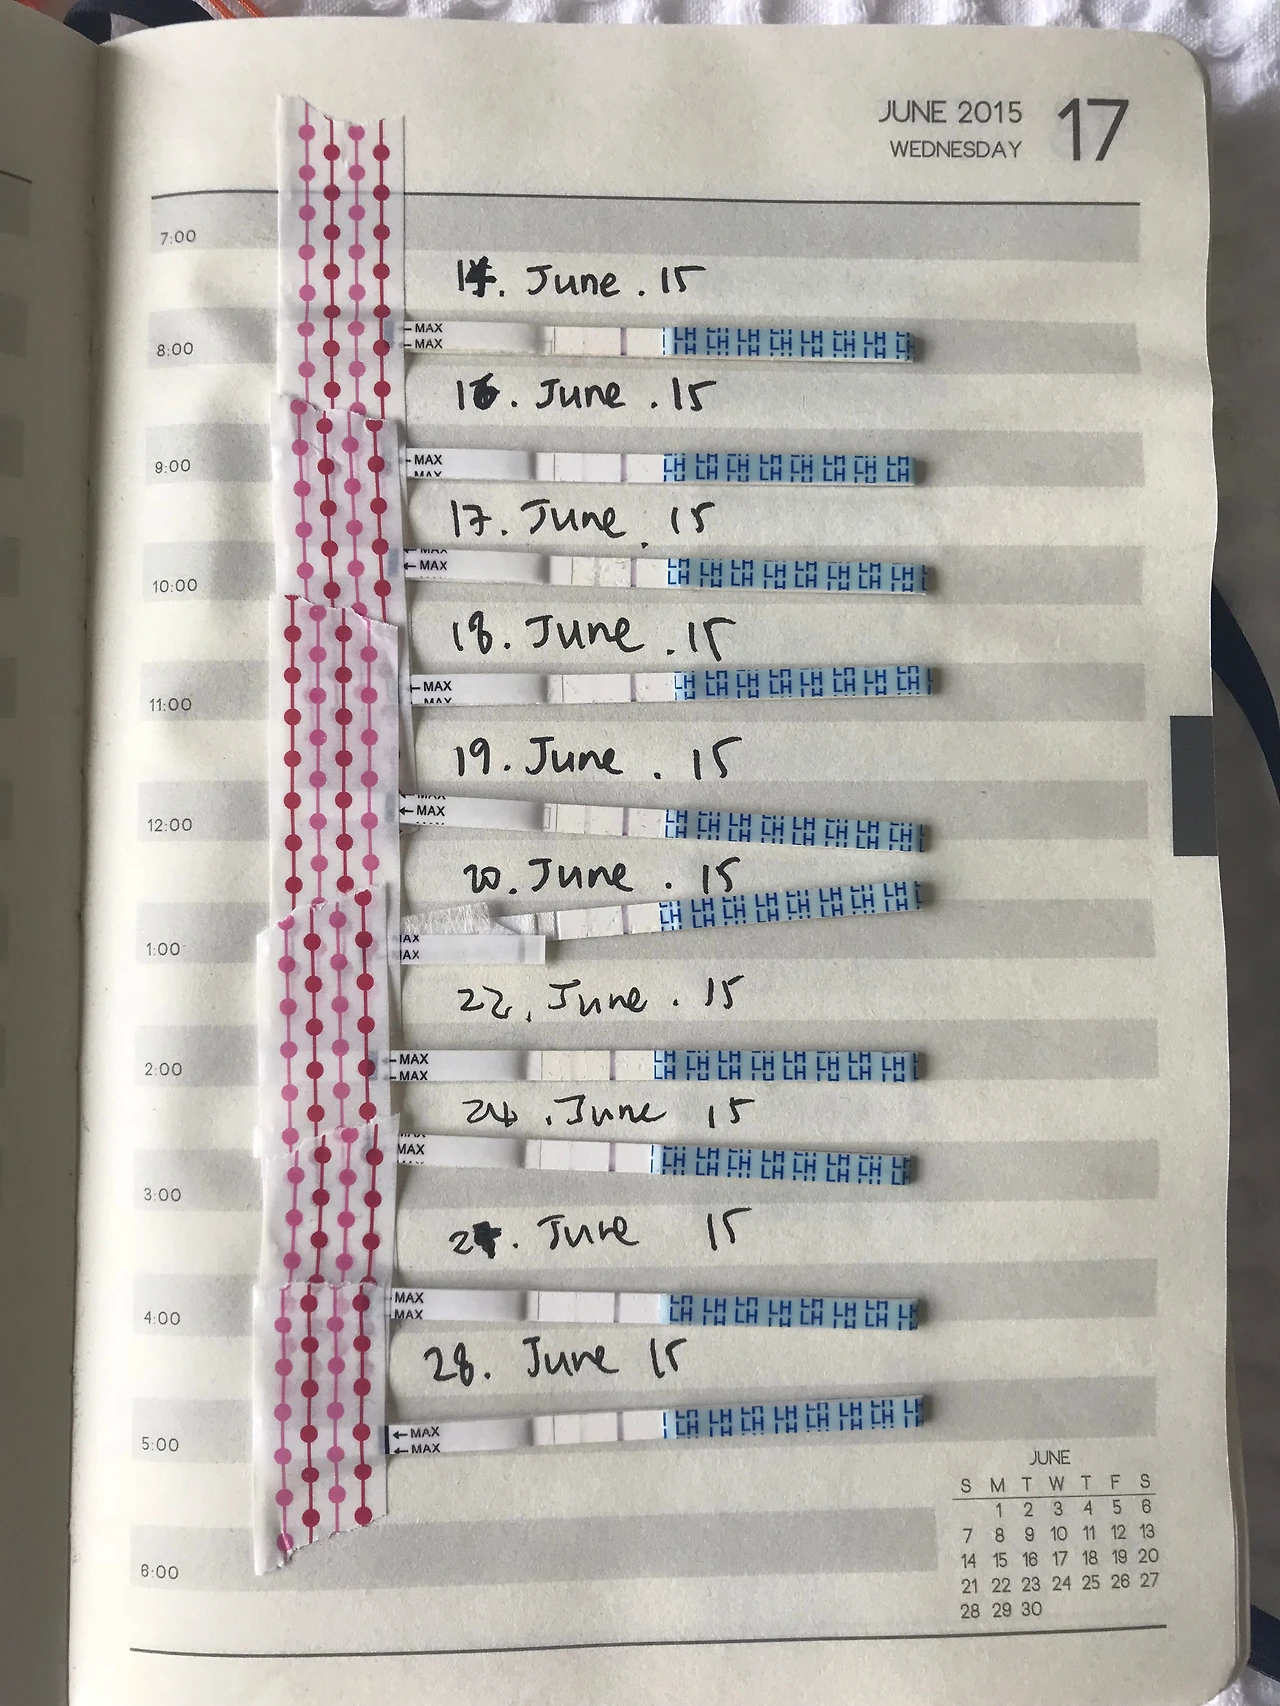 JUNE 2015 17
WEDNESDAY
7:00
14. June . 15
MAX
8:00 MAX LH LH LH LH LH LH LH LH
16. June . 15
9:00 MAX LH LH LH LH LH LH LH LH
MAX
17. June . 15
MAX
10:00 MAX LH LH LH LH LH LH LH LH
18. June . 15
11:00 MAX LH LH LH LH LH LH LH LH
MAX
19. June . 15
12:00 MAX LH LH LH LH LH LH LH LH
20. June . 15
LH LH LH LH LH LH LH LH
1:00 MAX
MAX
22. June . 15
MAX
2:00 MAX LH LH LH LH LH LH LH LH
24. June 15
MAX
MAX LH LH LH LH LH LH LH LH
3:00
June 15
MAX
4:00 MAX LH LH LH LH LH LH LH LH
28. June 15
MAX LH LH LH LH LH LH LH LH
5:00 MAX
6:00
JUNE
S M T W T F S
1 2 3 4 5 6
7 8 9 10 11 12 13
14 15 16 17 18 19 20
21 22 23 24 25 26 27
28 29 30